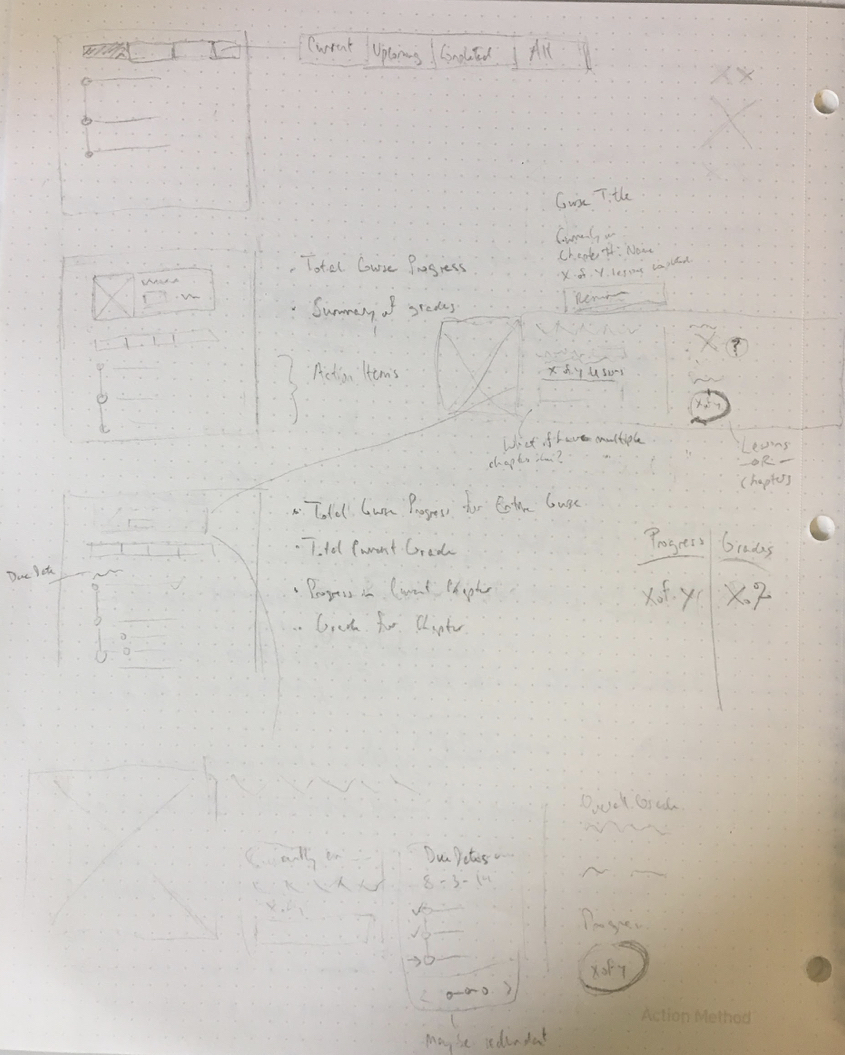 Current Upcoming Completed All
Course Title
Currently in
Chapter #: Name
X of Y lessons
Resume
• Total Course Progress
• Summary of grades
Action Items
X of Y Lessons
?
X of Y
What if have multiple
chapters
Lessons
- OR -
Chapters
• Total Course Progress for Entire Course
• Total Current Grade
• Progress in Current Chapter
• Grade for Chapter
Due Date
Progress Grades
X of Y X%
Overall Grade
Currently on
X of Y
Due Dates
8-3-14
Progress
X of Y
Maybe redundant
Action Method